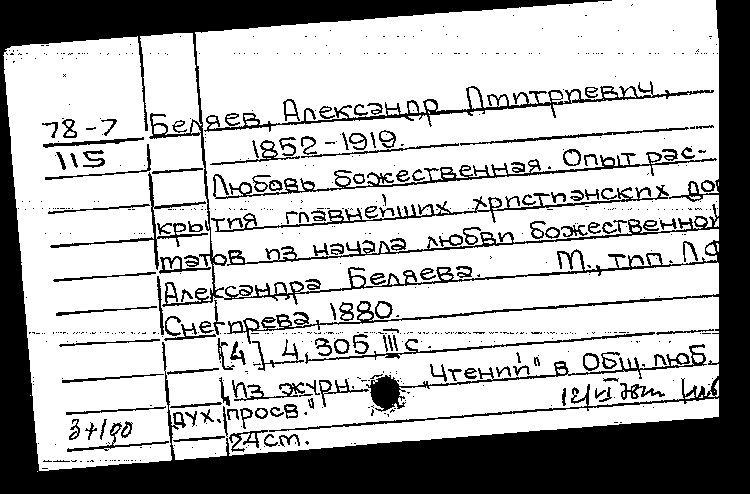 78-7 Беляев, Александр Дмитриевич,
115 1852-1919.
Любовь божественная. Опыт рас-
крытия главнейших христианских дог
матов из начала любви божественной
Александра Беляева. М., тип. Л.Ф
Снегирева, 1880.
[4], 4, 305, III с.
"Из журн. "Чтений" в Общ. люб.
дух. просв."
24 см.